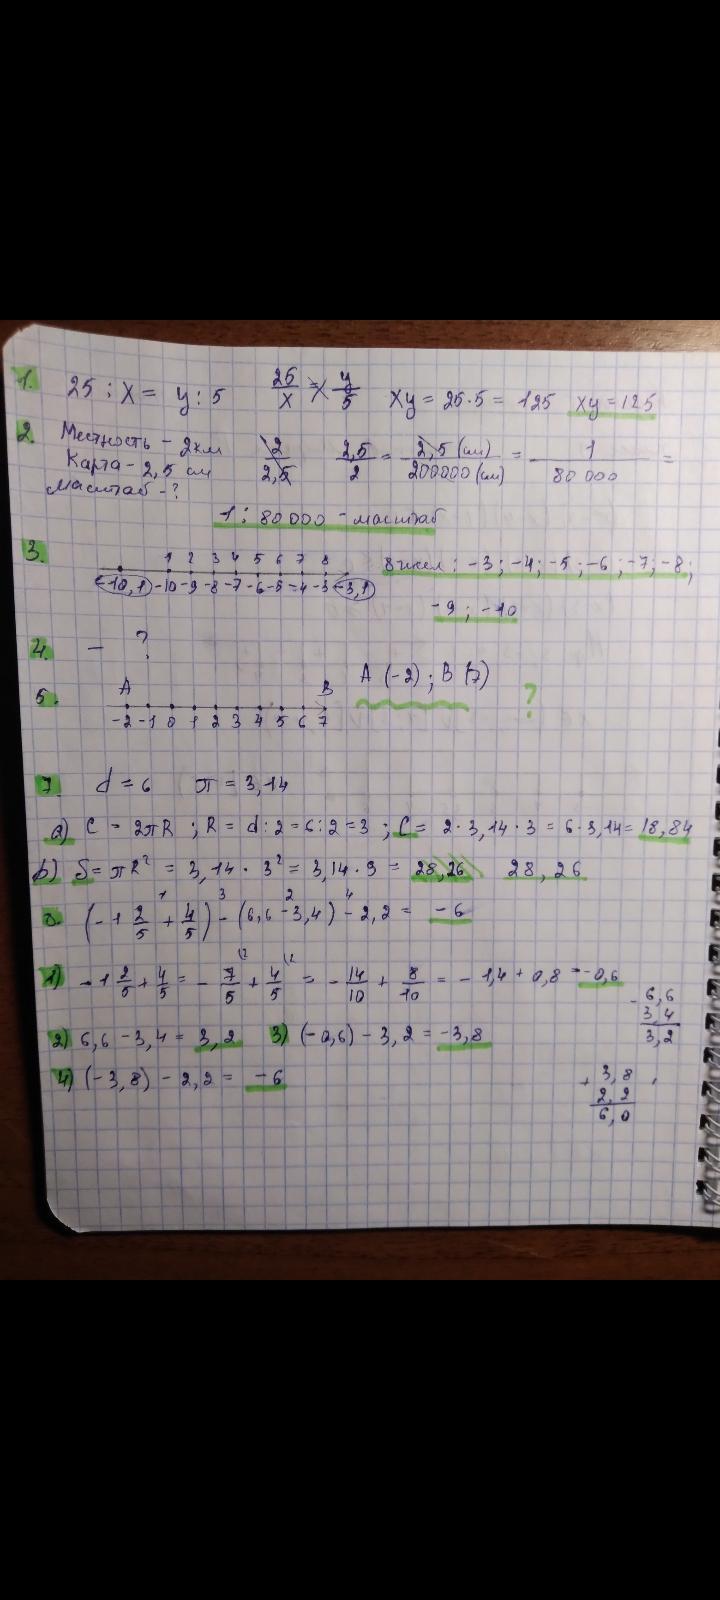 1. 25 : x = y : 5 25/x = y/5 xy = 25·5 = 125 xy = 125
2. Местность - 2км 2/2,5 2,5/2 = 2,5 (см)/200000 (см) = 1/80 000 =
Карта - 2,5 см
Масштаб - ?
1 : 80 000 - масштаб
3. 1 2 3 4 5 6 7 8 8 чисел : -3 ; -4 ; -5 ; -6 ; -7 ; -8 ;
-10,1 -10 -9 -8 -7 -6 -5 -4 -3 -3,1
-9 ; -10
4. - ?
5. A B A (-2) ; B (7) ?
-2 -1 0 1 2 3 4 5 6 7
7. d = 6 π = 3,14
a) C = 2πR ; R = d : 2 = 6 : 2 = 3 ; C = 2 · 3,14 · 3 = 6 · 3,14 = 18,84
b) S = πR² = 3,14 · 3² = 3,14 · 9 = 28,26 28,26
1 3 2 4
8. (-1 2/5 + 4/5) - (6,6 - 3,4) - 2,2 = -6
1) -1 2/5 + 4/5 = - 7/5 + 4/5 = - 14/10 + 8/10 = - 1,4 + 0,8 = -0,6
- 6,6
3,4
3,2
2) 6,6 - 3,4 = 3,2 3) (-0,6) - 3,2 = -3,8
4) (-3,8) - 2,2 = -6
+ 3,8
2,2
6,0